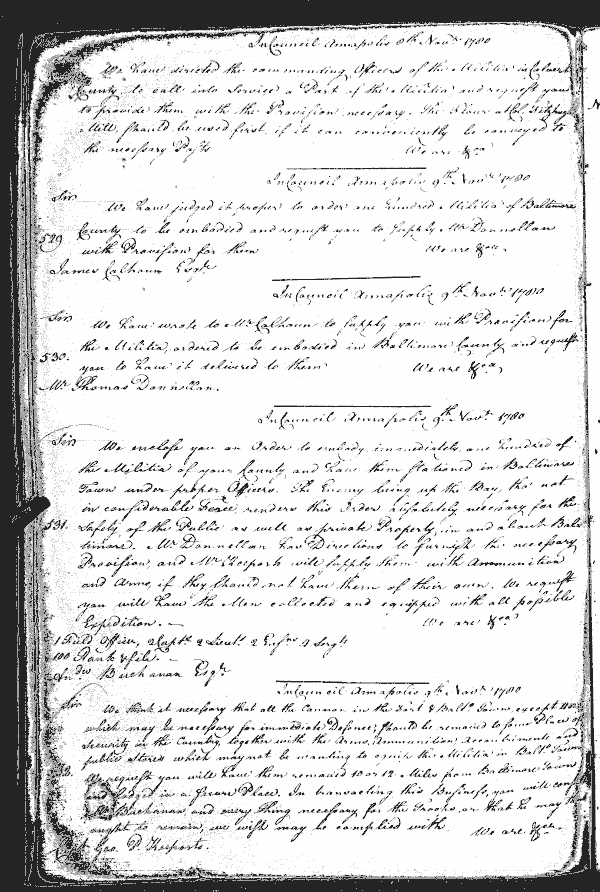 In Council Annapolis 8th Novr 1780
We have directed the commanding Officers of the Militia in Calvert
County to call into Service a Part of the Militia and request you
to provide them with the Provision necessary. The Flour at Col. Fitzhugh
Mill, should be used first, if it can conveniently be conveyed to
the necessary We are &ca
In Council Annapolis 9th Novr 1780
Sir
We have judged it proper to order one hundred Militia of Baltimore
529 County to be embodied and request you to supply Mr Donnellan
with Provision for them We are &ca
James Calhoun Esqr
In Council Annapolis 9th Novr 1780
Sir
We have wrote to Mr Calhoun to supply you with Provision for
530. the Militia, ordered to be embodied in Baltimore County and request
you to have it delivered to them We are &ca
Mr Thomas Donnellan.
In Council Annapolis 9th Novr 1780
Sir
We enclose you an Order to embody immediately, one hundred of
the Militia of your County, and have them stationed in Baltimore
Town under proper Officers. The Enemy being up the Bay, tho' not
in considerable Force, renders this Order absolutely necessary for the
531. Safety of the Public as well as private Property, in and about Bal
timore. Mr Donnellan has Directions to furnish the necessary
Provision, and Mr Keeports will supply them with Ammunition
and Arms, if they should not have them of their own. We request
you will have the Men collected and equipped with all possible
Expedition. — We are &ca
1 Field Officer, 2 Capts 2 Lieuts 2 Ensns 4 Sergts
100 Rank & file. —
Andw Buchanan Esqr
In Council Annapolis 9th Novr 1780
Sir
We think it necessary that all the Cannon in the Fort & Balto Town, except
which may be necessary for immediate Defence, should be removed to some Place of
Security in the Country, together with the Arms, Ammunition, Accoutrements and
public Stores which may not be wanting to equip the Militia in Balto Town
We request you will have them removed 10 or 12 Miles from Baltimore Town
and lodged in a secure Place. In transacting this Business, you will
Mr Buchanan, and every thing necessary for the Troops, or that he may
ought to remain, we wish may be complied with. We are &ca
Geo. P. Keeports.